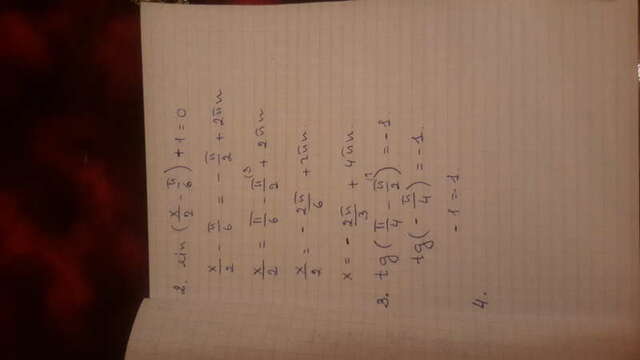 2. sin (x/2 - π/6) + 1 = 0
x/2 - π/6 = - π/2 + 2πn
x/2 = π/6 - π/2 (3 + 2πn
x/2 = - 2π/6 + 2πn
x = - 2π/3 + 4πn
3. tg (π/4 - π/2) = -1
tg (- π/4) = -1.
-1 = -1
4.